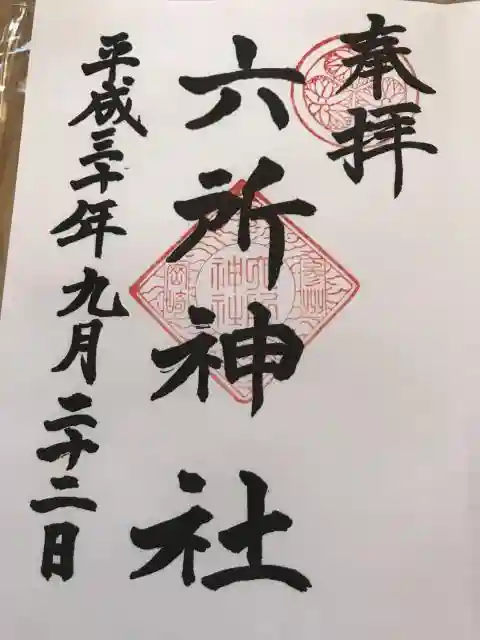 奉拝
六所神社
平成三十年九月二十二日
岡崎
六所
神社